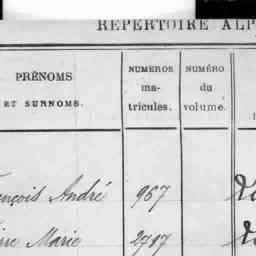 REPERTOIRE ALP
PRÉNOMS
ET SURNOMS.
NUMEROS
ma-
tricules.
NUMÉRO
du
volume.
ençois André 967
Marie